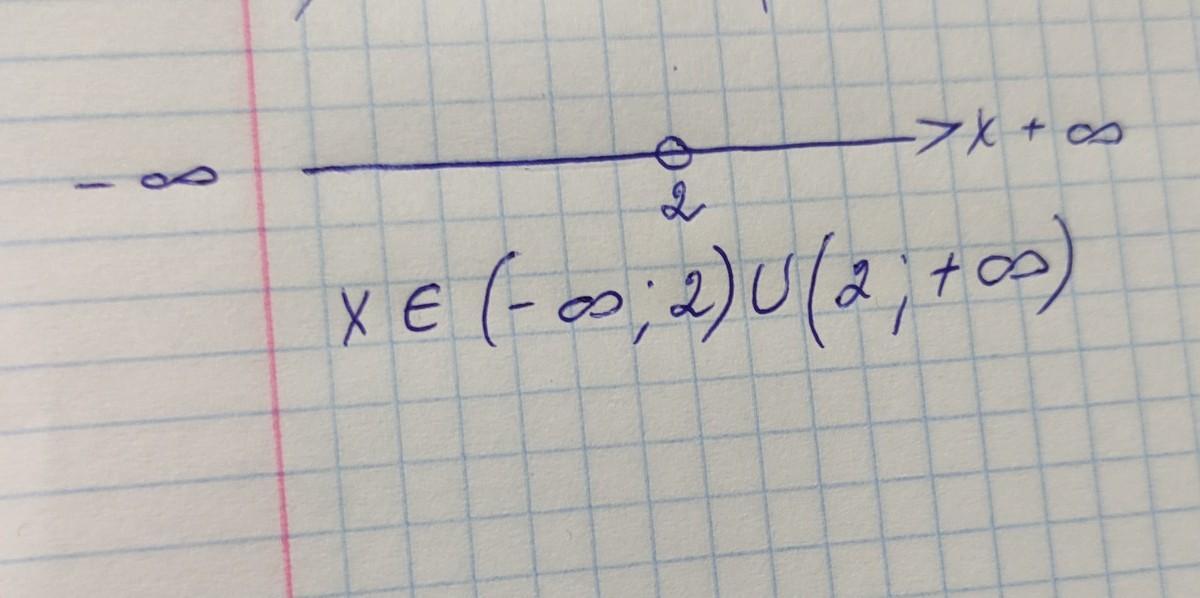 - ∞ x + ∞
2
x ∈ (- ∞; 2) ∪ (2; + ∞)